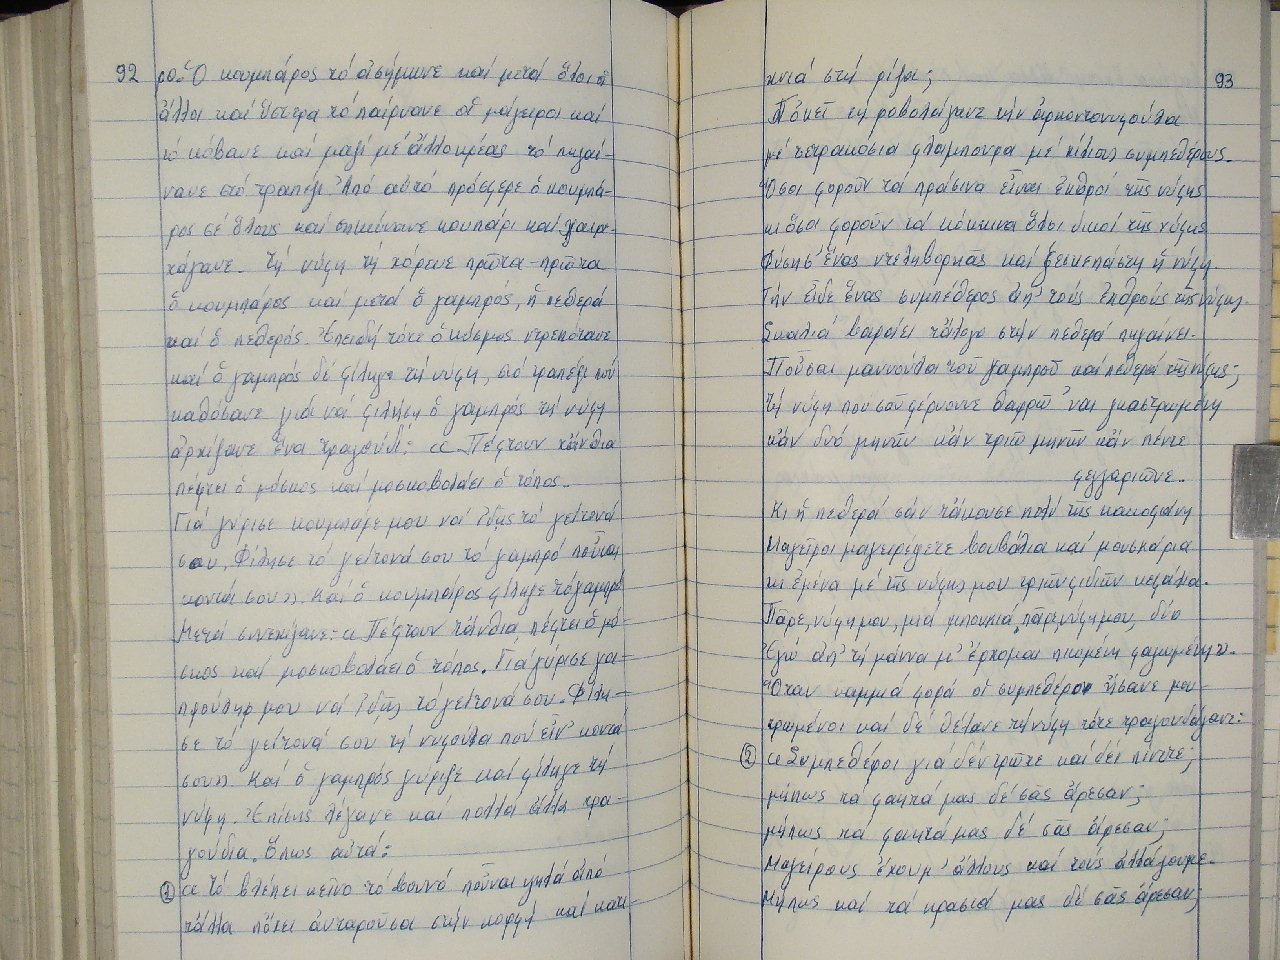 92
ρο. Ὁ κουμπάρος τό ἀσήμωνε καί μετά ὅλοι οἱ
ἄλλοι καί ὕστερα τό παίρνανε οἱ μάγειροι καί
τό κόβανε καί μαζί μέ ἄλλο κρέας τό πηγαί-
νανε στό τραπέζι. Ἀπό αὐτό πρόσφερε ὁ κουμπά-
ρος σέ ὅλους καί σηκώνανε κουπάρι καί χαιρε-
τάγανε. Τή νύφη τή χόρευε πρῶτα-πρῶτα
ὁ κουμπάρος καί μετά ὁ γαμπρός, ἡ πεθερά
καί ὁ πεθερός. Ἐπειδή τότε ὁ κόσμος ντρεπότανε
καί ὁ γαμπρός δέ φίλαγε τή νύφη, στό τραπέζι πού
καθόσανε γιά νά φιλήση ὁ γαμπρός τή νύφη
ἀρχίζανε ἕνα τραγούδι: « Πέφτουν τἄνθια
πέφτει ὁ μόσκος καί μοσκοβολάει ὁ τόπος.
Γιά γύρισε κουμπάρε μου νά ἰδῆς τό γείτονά
σου. Φίλησε τό γείτονά σου τό γαμπρό ποὖναι
κοντά σου». Καί ὁ κουμπάρος φίλαγε τό γαμπρό
Μετά συνεχίζανε: « Πέφτουν τἄνθια, πέφτει ὁ μό-
σκος καί μοσκοβολάει ὁ τόπος. Γιά γύρισε γα-
μπρούλη μου νά ἰδῆς τό γείτονά σου. Φίλη-
σε τό γείτονά σου τή νυφούλα πού εἶν' κοντά
σου». Καί ὁ γαμπρός γύριζε καί φίλαγε τή
νύφη. Ἐπίσης λέγανε καί πολλά ἄλλα τρα-
γούδια. Ὅπως αὐτά:
1 « Τό βλέπει κεῖνο τό βουνό ποὖναι ψηλά ἀπό
τἄλλα πὄχει ἀνταροῦσα στήν κορφή καί κατα-
93
χνιά στή ρίζα;
Πὀκεῖ τη ροβολάγανε τήν ἀρχοντονυφούλα
μέ τετρακόσια φλάμπουρα μέ χίλιους συμπεθέρους.
Ὅσοι φοροῦν τά πράσινα εἶναι ἐχθροί τῆς νύφης
κι ὅσοι φοροῦν τά κόκκινα ὅλοι δικοί τῆς νύφης
Φύσησ' ἕνας ντεληβοριᾶς καί ξεσκεπάστη ἡ νύφη
Τήν εἶδε ἕνας συμπέθερος ἀπ' τούς ἐχθρούς τῆς νύφης.
Σκαλιά βαράει τἄλογο στήν πεθερά πηγαίνει.
Ποὖσαι μαννούλα τοῦ γαμπροῦ καί πεθερά τῆς νύφης;
τή νύφη που σοῦ φέρνουνε θαρρῶ 'ναι γκαστρωμένη
κἄν δυό μηνῶν κἄν τριῶ μηνῶν κἄν πέντε
φεγγαριῶνε.
Κι ἡ πεθερά σάν τἄκουσε πολύ τῆς κακοφάνη
Μαγείροι μαγειρέψετε βουβάλια καί μουσκάρια
κι ἐμένα μέ τῆς νύφης μου τριῶν φιδιῶν κεφάλια.
Πάρε, νύφη μου, μιά μπουκιά, πάρε, νύφη μου, δύο
Ἐγώ ἀπ' τή μάννα μ' ἔρχομαι πιομένη φαγωμένη».
Ὅταν καμμιά φορά οἱ συμπεθέροι ἤσανε μου-
τρωμένοι καί δέ θέλανε τή νύφη τότε τραγουδάγανε:
2 « Συμπεθέροι γιά δέν τρῶτε καί δέ πίνετε;
μήπως τά φαητά μας δέ σᾶς ἄρεσαν;
μήπως τά φαητά μας δέ σᾶς ἄρεσαν;
Μαγείρους ἔχουμ' ἄλλους καί τούς ἀλλάζουμε.
Μήπως καί τά κρασιά μας δέ σᾶς ἄρεσαν;